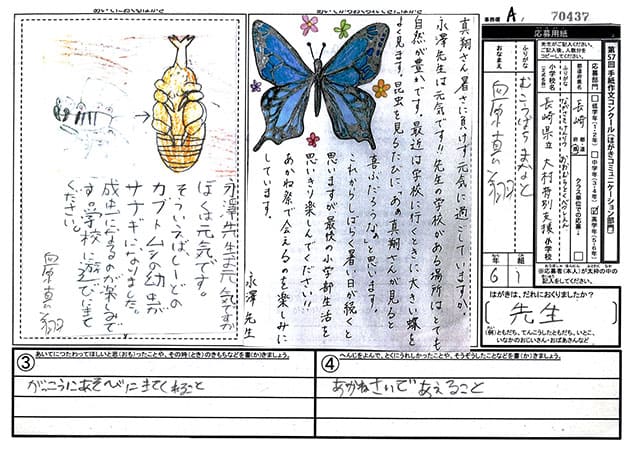 整理番号 A 70437
応募用紙
先生がご記入ください。
ご記入後、人数分を
コピーしてください。
第57回 手紙作文コンクール はがきコミュニケーション部門
応募部門
低学年(1・2年)
中学年(3・4年)
高学年(5・6年)
都道府県名
長崎
クラス単位での応募
ふりがな
小学校名
(正式名称)
長崎県立 大村特別支援 小学校
ふりがな
おなまえ
向原真翔
年 6
組 1
※応募者(本人)が太枠の中の
記入をしてください。
はがきは、だれにおくりましたか?
先生
(例)ともだち、てんこうしたともだち、いとこ、
いなかのおじいさん・おばあさんなど
真翔さん、暑さに負けず元気に過ごしていますか。
永澤先生は元気です!!先生の学校がある場所はとても
自然が豊かです。最近は学校に行くときに大きい蝶を
よく見ます。昆虫を見るたびに、「あっ真翔さんが見ると
喜ぶだろうな。」と思います。
これからしばらく暑い日が続くと
思いますが最後の小学部生活を
思いきり楽しんでください!!
あかね祭で会えるのを楽しみに
しています。
永澤先生
永澤先生お元気ですか
ぼくは元気です。
そういえばしいどの
カブトムシの幼虫が
サナギになりました。
成虫になるのが楽しみで
す。学校に遊びにきて
ください。
向原真翔
③ あいてにつたわってほしいと思(おも)ったことや、その時(とき)のきもちなどを書(か)きましょう。
がっこうにあそべびにきてくれること
④ へんじをよんで、とくにうれしかったことや、そうぞうしたことなどを書(か)きましょう。
あかねさいであえること